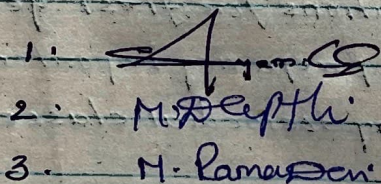 1.
2. M. Deepthi
3. M. RamaDevi